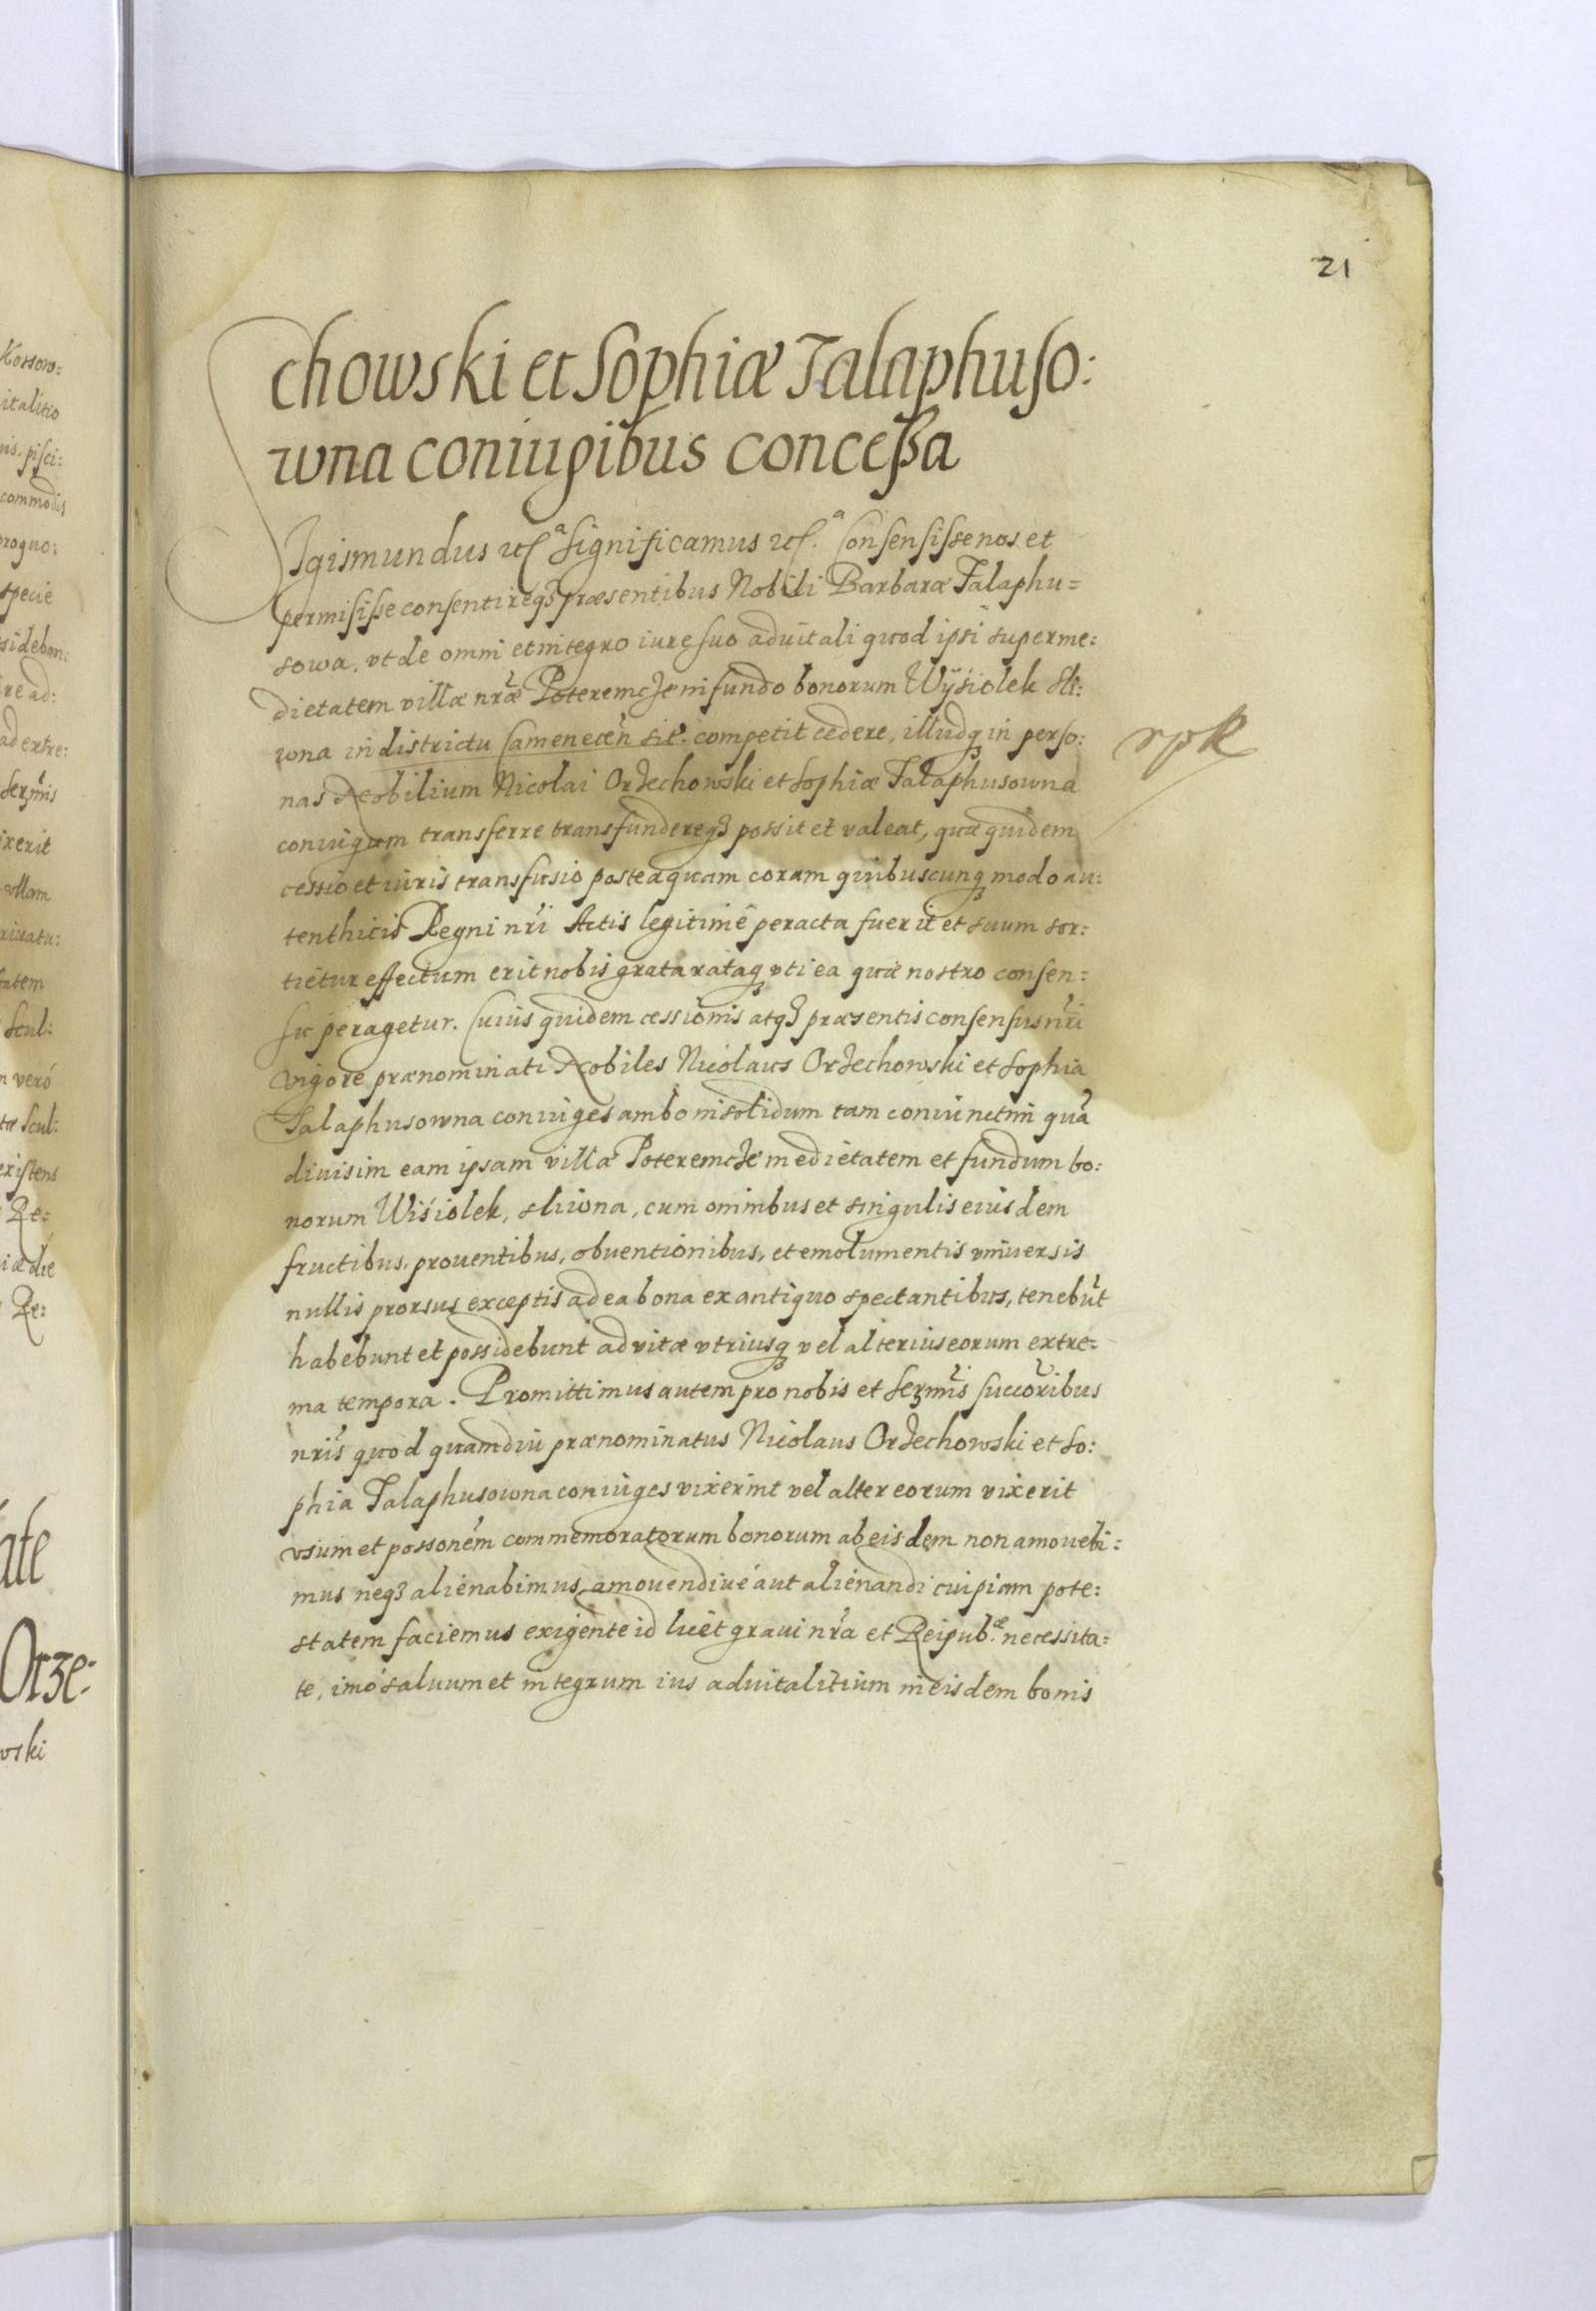 21
chowski et Sophiæ Talaphuso:
wna coniugibus concessa
Sigismundus etc.a Significamus etc.a Consensisse nos et
permisisse consentireqз præsentibus Nobili Barbaræ Talaphu=
sowa, vt de omni et integro iure suo aduitali quod ipsi super me:
dietatem villæ nr̃æ Poteremcze in fundo bonorum Wÿsiolek Sli:
wna in districtu Cameneceñ sit: competit cedere, illudqз in perso:
nas Nobilium Nicolai Orzechowski et Sophiæ Talaphusowna
coniugum transferre transfundereqз possit et valeat, quæ quidem
cessio et iuris transfusio posteaquam coram quibuscunqз modo au:
tenthicis Regni nr̃i Actis legitimè peracta fuerit et suum sor:
tietur effectum erit nobis grata rataqз vti ea quæ nostro consen:
su peragetur. Cuius quidem cessionis atqз præsentis consensus nr̃i
vigore prænominati Nobiles Nicolaus Orzechowski et Sophia
Talaphusowna coniuges ambo insolidum tam coniunctim quã
diuisim eam ipsam villæ Poteremcze medietatem et fundum bo:
norum Wisiolek, sliwna, cum omnibus et singulis eiusdem
fructibus, prouentibus, obuentionibus, et emolumentis vniuersis
nullis prorsus exceptis ad ea bona ex antiquo spectantibus, tenebũt
habebunt et possidebunt ad vitæ vtriusqз vel alterius eorum extre=
ma tempora. Promittimus autem pro nobis et Serz̃mis succor̃ibus
nr̃is quod quamdiu prænominatus Nicolaus Orzechowski et So:
phia Talaphusowna coniuges vixerint vel alter eorum vixerit
vsum et posson̄em commemoratorum bonorum ab eisdem non amouebi:
mus neqз alienabimus, amouendiué aut alienandi cuipiam pote:
statem faciemus exigente id licèt graui nr̃a et Reipub.æ necessita=
te, imó saluum et integrum ius aduitalitium in eisdem bonis